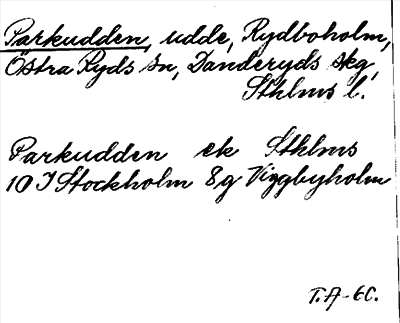 Parkudden, udde, Rydboholm,
Östra Ryds sn, Danderyds skg,
Sthlms l.
Parkudden ek Sthlms
10 I Stockholm 8g Viggbyholm
T.A-60.